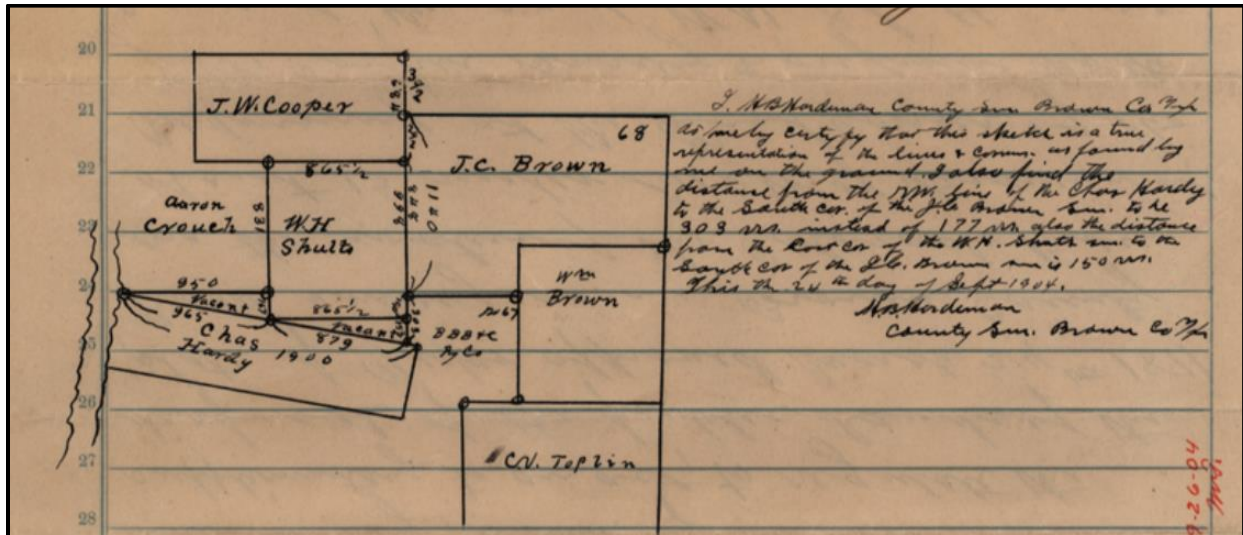 20
21
22
23
24
25
26
27
28
J.W. Cooper
865½
J.C. Brown
68
Aaron
Crouch
W.H
Shults
831
950
Vacant
965
865½
Vacant
879
Chas
Hardy 1900
BBB&C
Ry Co
Wm
Brown
C.V. Toplin
I. HB Hordeman County Sur. Brown Co Tx
do hereby certyfy that this sketch is a true
representation of the lines & corners. as found by
me on the ground. I also find the
distance from the N.W. line of the Chas Hardy
to the South cor. of the J.C. Brown Sur. to be
303 vrs. instead of 177 vrs also the distance
from the East cor of the W.H. Shults sur. to the
South cor of the J.C. Brown sur is 150 vrs.
This the 20th day of Sept 1904.
H.B. Hordeman
County Sur. Brown Co Tx
9-26-04